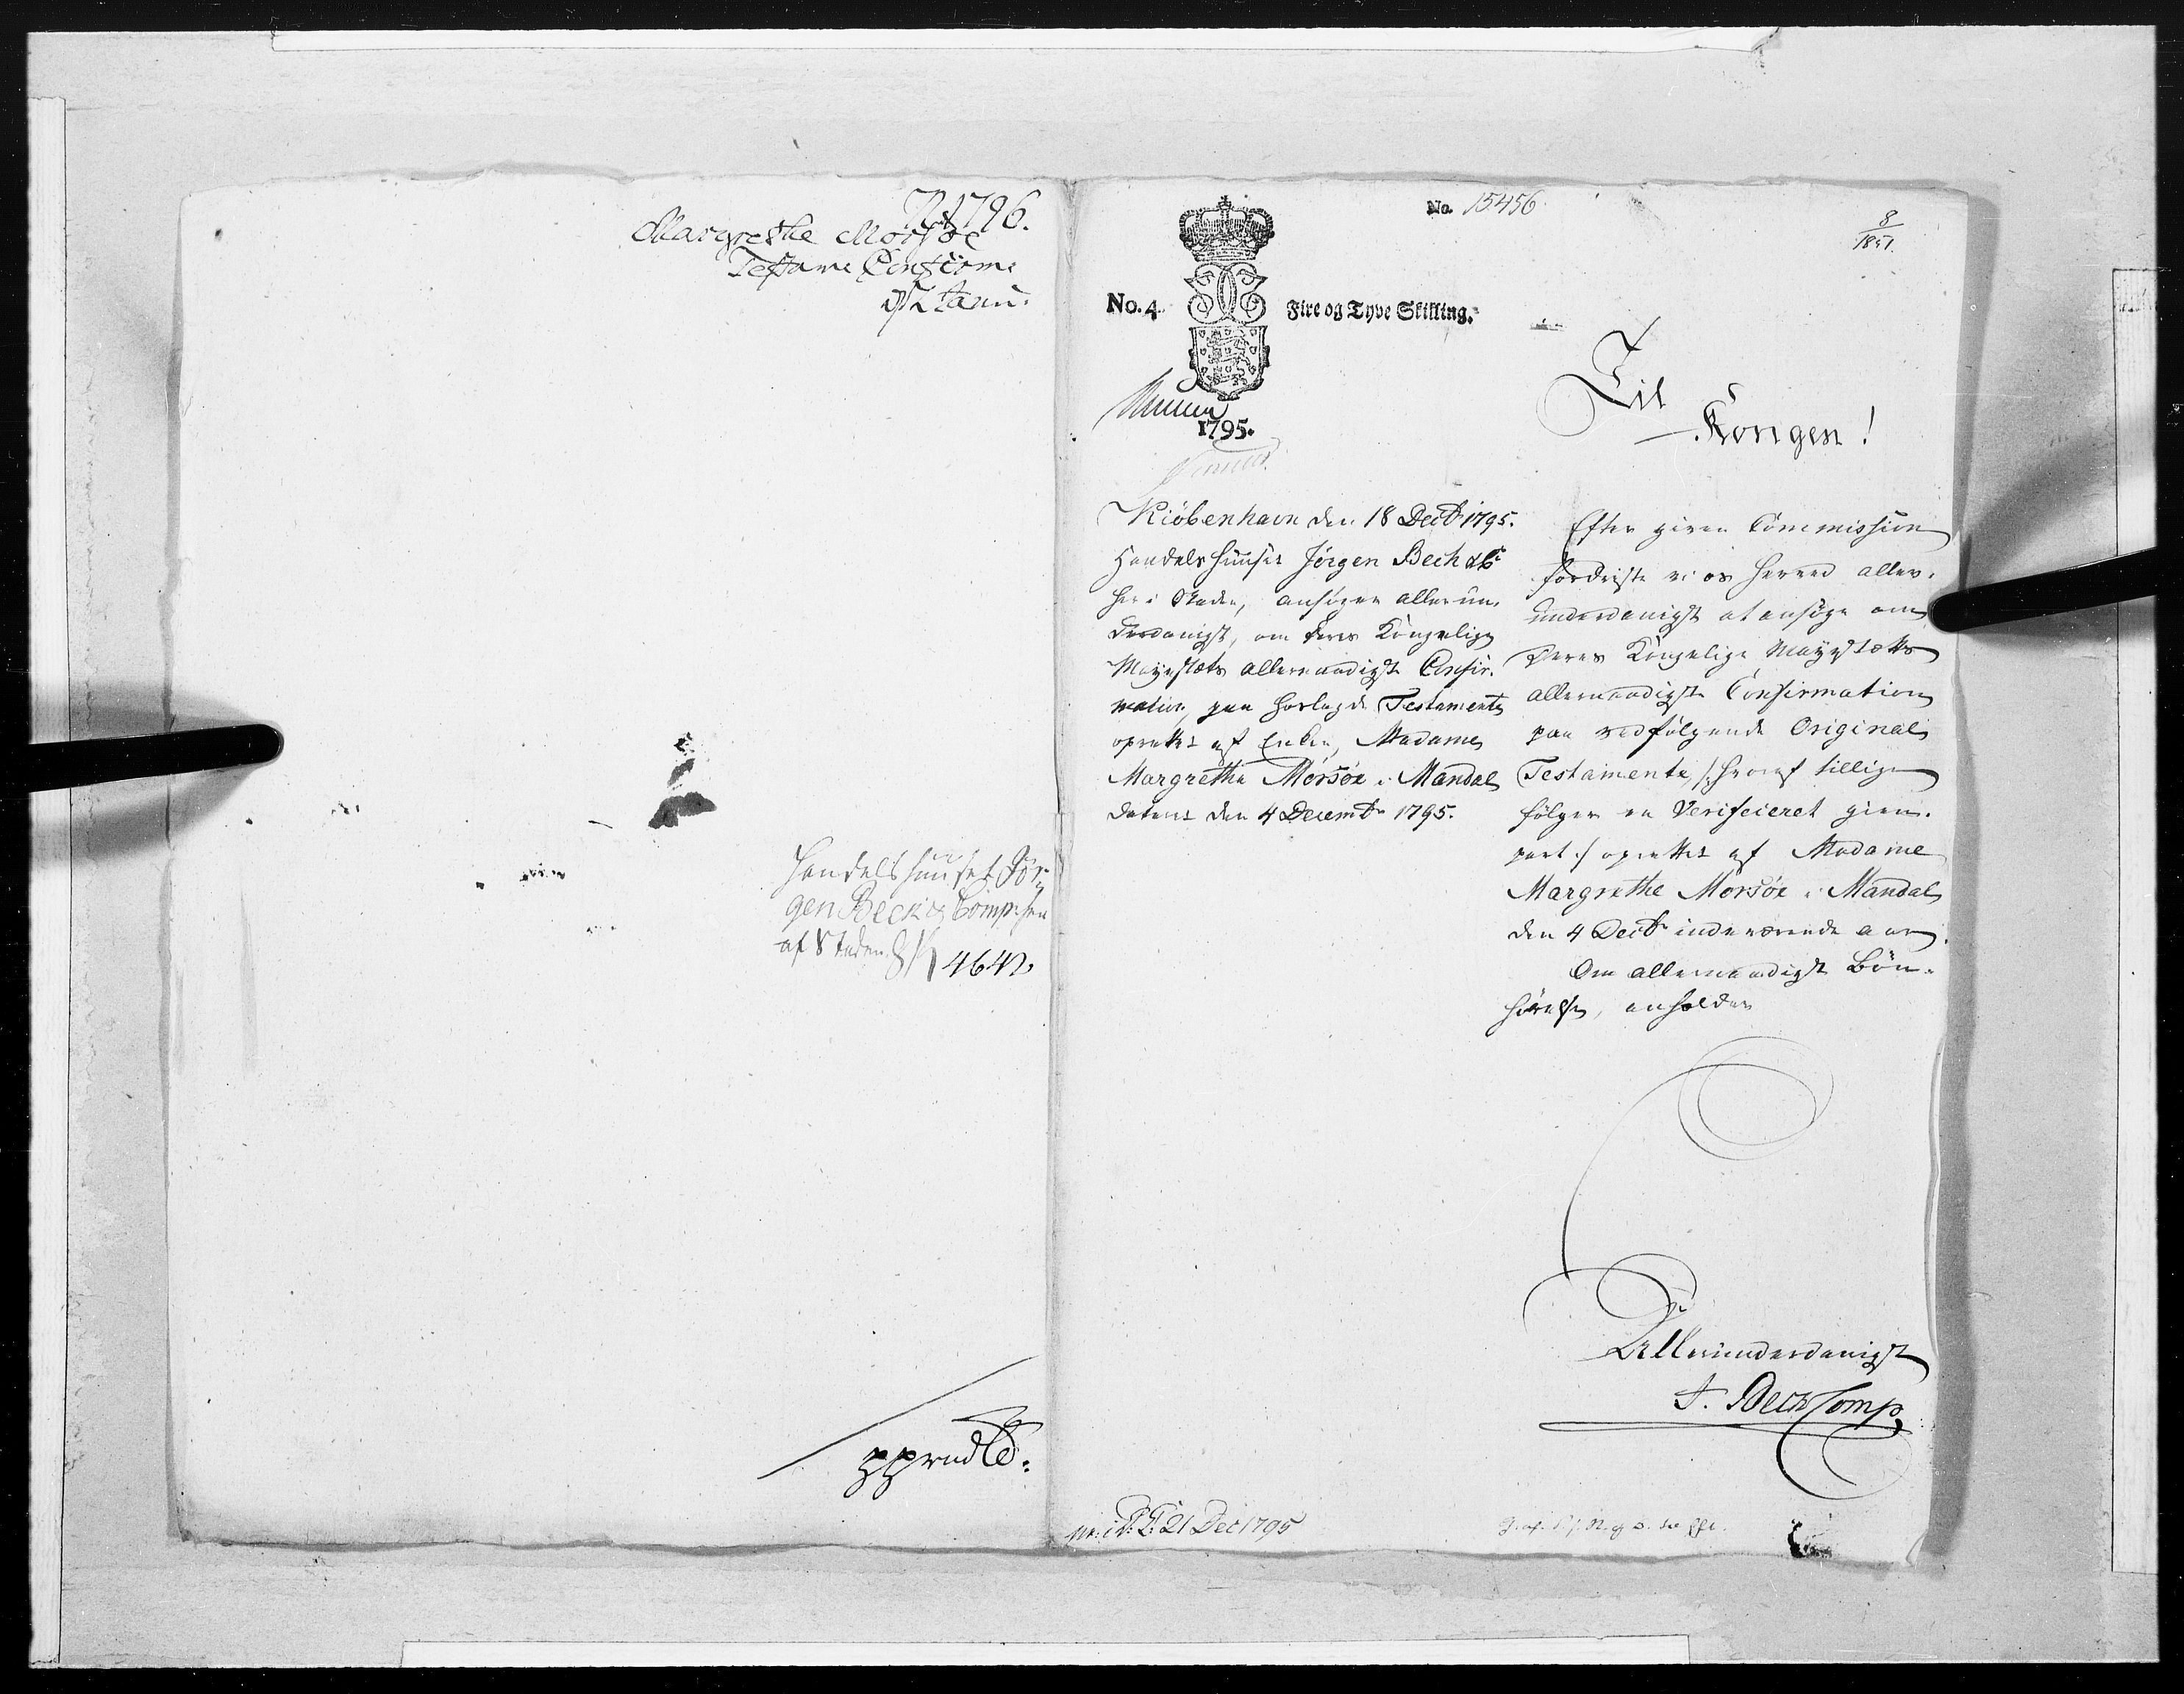 1796.
Margrethe Morsøe
Testam: Confirm:
Janu:
Handelshuuset Jør-
gen Beck & Comp: her
af Staden
4642.
No. 15456.
8
1851.
No. 4 Fire og Tyve Skilling.
1795.
Til
Kongen!
Kiöbenhavn den 18 Decbr 1795.
Handelshuuset Jörgen Bech & Co
her i Staden, ansøger allerun-
derdanigst, om Deres Kongelige
Mayestæts allernaadigste Confir-
mation, paa hoslagde Testamente
oprettet af Enken, Madame
Margrethe Morsöe i Mandal
dateret den 4 Decembr 1795.
Efter given Commission
fordriste vi os herved aller-
underdanigst at ansøge om
Deres Kongelige Mayestæts
allernaadigste Confirmation
paa vedfølgende Original
Testamente, /: hvoraf tillige
følger en Verificeret gien-
part :/ oprettet af Madame
Margrethe Morsöe i Mandal
den 4 Decbr indeværende aar.
Om allernaadigst Bön-
hørelse, anholder
Allerunderdanigst
J. Bech & Comp
21 Dec 1795